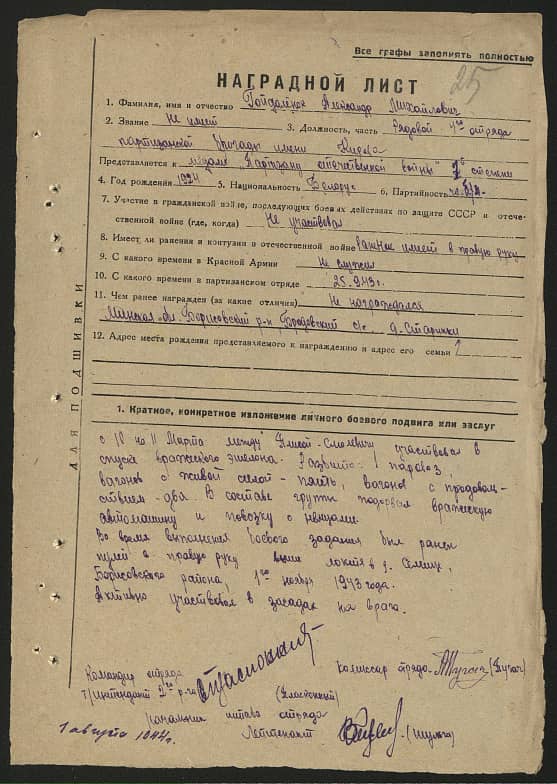 Все графы заполнять полностью
25
НАГРАДНОЙ ЛИСТ
1. Фамилия, имя и отчество Гайдалёнок Александр Михайлович
2. Звание Не имеет 3. Должность, часть Рядовой отряда
партизанской бригады имени
Представляется к медали "Партизану отечественной войны" степени
4. Год рождения 1924 5. Национальность Белорус 6. Партийность
7. Участие в гражданской войне, последующих боевых действиях по защите СССР и отече-
ственной войне (где, когда) Не участвовал
8. Имеет ли ранения и контузии в отечественной войне имеет в правую руку
9. С какого времени в Красной Армии Не служил
10. С какого времени в партизанском отряде 25.9.43г.
11. Чем ранее награжден (за какие отличия) Не награждался
Минская обл. Борисовский р-н с/с д. Старинки
12. Адрес места рождения представляемого к награждению и адрес его семьи
ДЛЯ ПОДШИВКИ
1. Краткое, конкретное изложение личного боевого подвига или заслуг
с 10 на 11 Марта между Смолевичи участвовал в
спуске вражеского эшелона. Разбито: 1 паровоз,
вагонов с живой силой - пять, вагонов с продоволь-
ствием - два. В составе группы подорвал вражескую
автомашину и повозку с немцами.
Во время выполнения боевого задания был ранен
пулей в правую руку выше локтя в д.
Борисовского района, 1го ноября 1943 года.
Активно участвовал в засадах на врага.
Командир отряда
т/интендант 2го р-га
комиссар отряда
начальник штаба отряда
Лейтенант
1 августа 1944г.